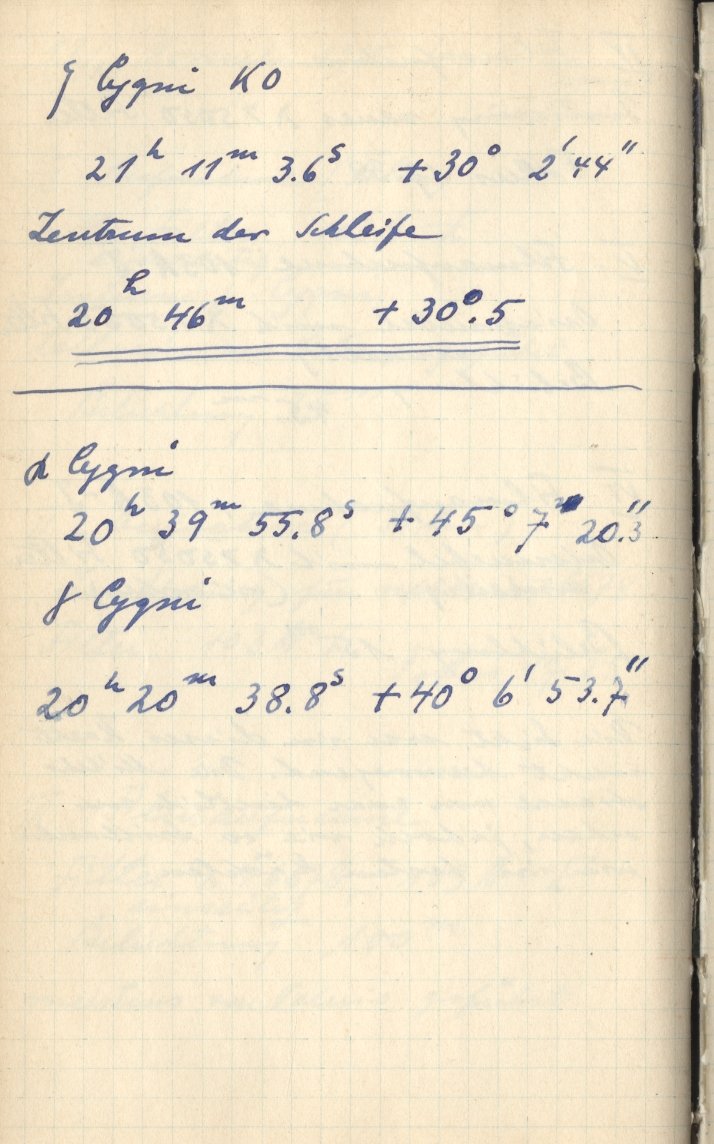 ζ Cygni K0
21ʰ 11ᵐ 3.6ˢ +30° 2' 44"
Zentrum der Schleife
20ʰ 46ᵐ +30°.5
α Cygni
20ʰ 39ᵐ 55.8ˢ +45° 7' 20.3"
γ Cygni
20ʰ 20ᵐ 38.8ˢ +40° 6' 53.7"